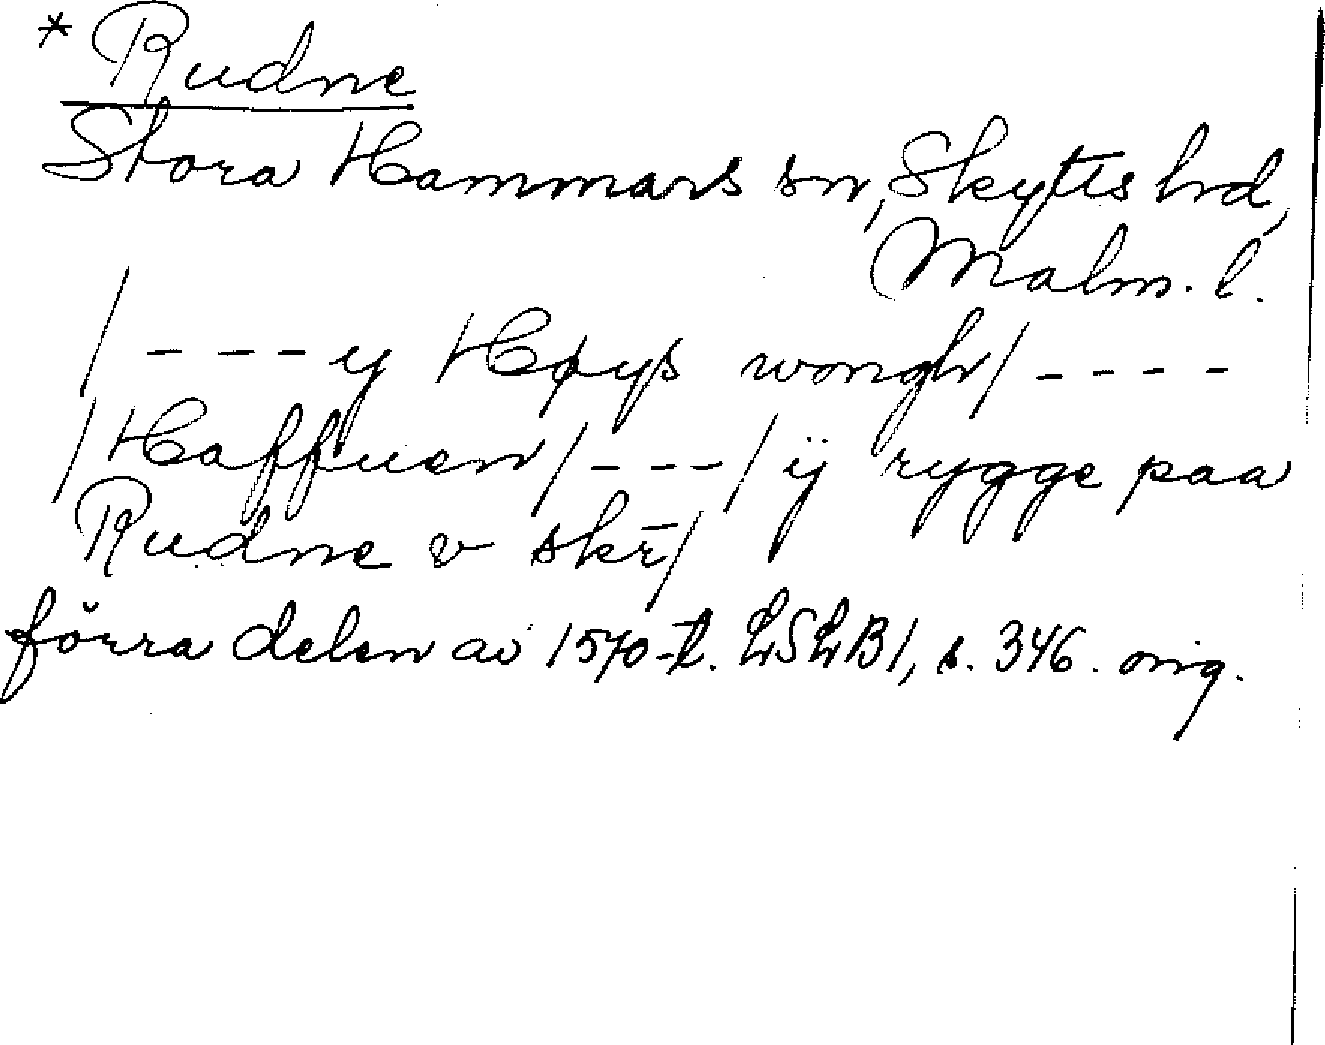 * Rudne
Stora Hammars sn, Skytts hd,
Malm. l.
/ - - - y Høys wongh / - - - -
/ Haffuen / - - - / ÿ rygge paa
Rudne v skr̄ /
förra delen av 1570-t. LSLB1, s. 346. orig.